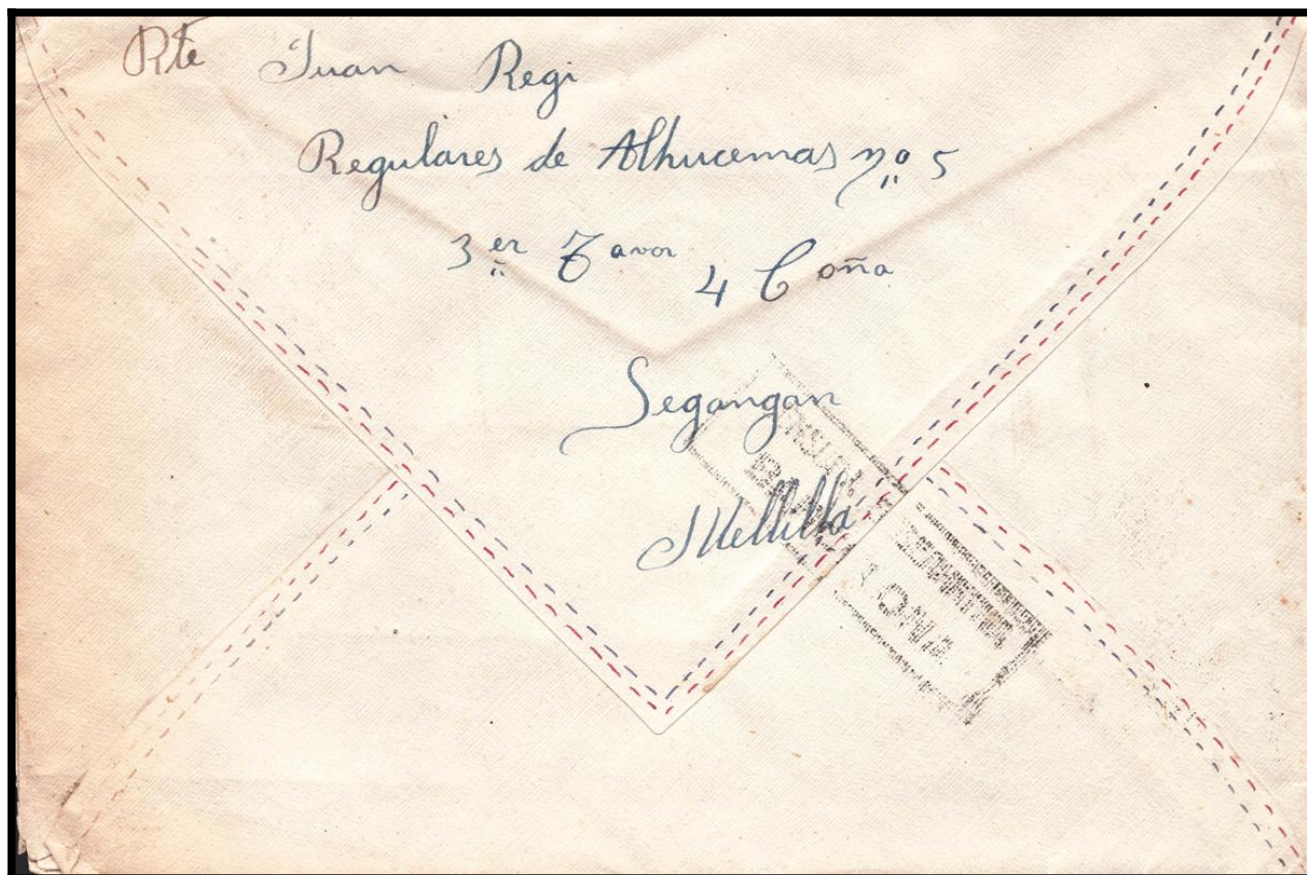 Rte Juan Regi
Regulares de Alhucemas nº 5
3er Tavor 4 Coña
Segangan
Melilla